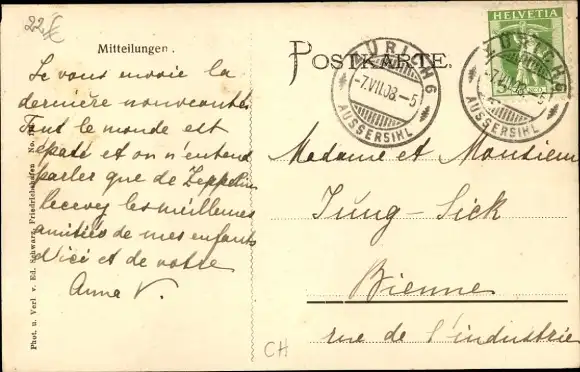 22.
Mitteilungen.
POSTKARTE.
ZÜRICH 6
-7.VII.08.-5
AUSSERSIHL
HELVETIA
ZÜRICH 6
-7.VII.08.-5
AUSSERSIHL
Je vous envoie la
dernière nouveauté
Tout le monde est
épaté et on n'entend
parler que de Zeppelin
Recevez les meilleures
amitiés de mes enfants
d'ici et de votre
Anna V.
Madame et Monsieur
Jung-Sick
Bienne
rue de l'industrie
CH
Phot. u. Verl v. Ed. Schwarz, Friedrichshafen No.